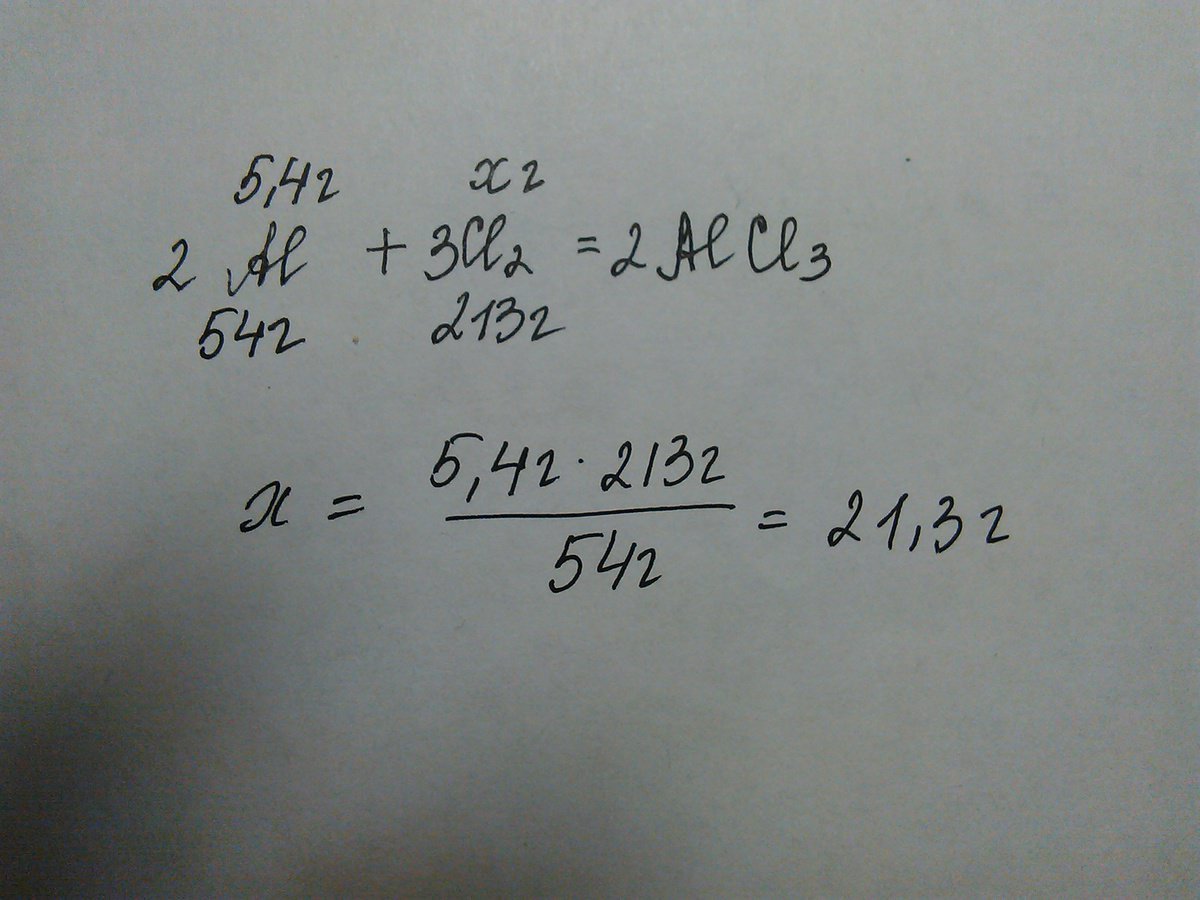 5,4г xг
2 Al + 3Cl₂ = 2 AlCl₃
54г 213г
x = 5,4г · 213г / 54г = 21,3г